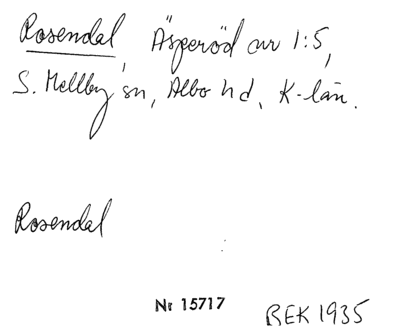 Rosendal Äsperöd av 1:5,
S. Mellby sn, Albo hd, K-län.
Rosendal
Nr 15717
BEK 1935